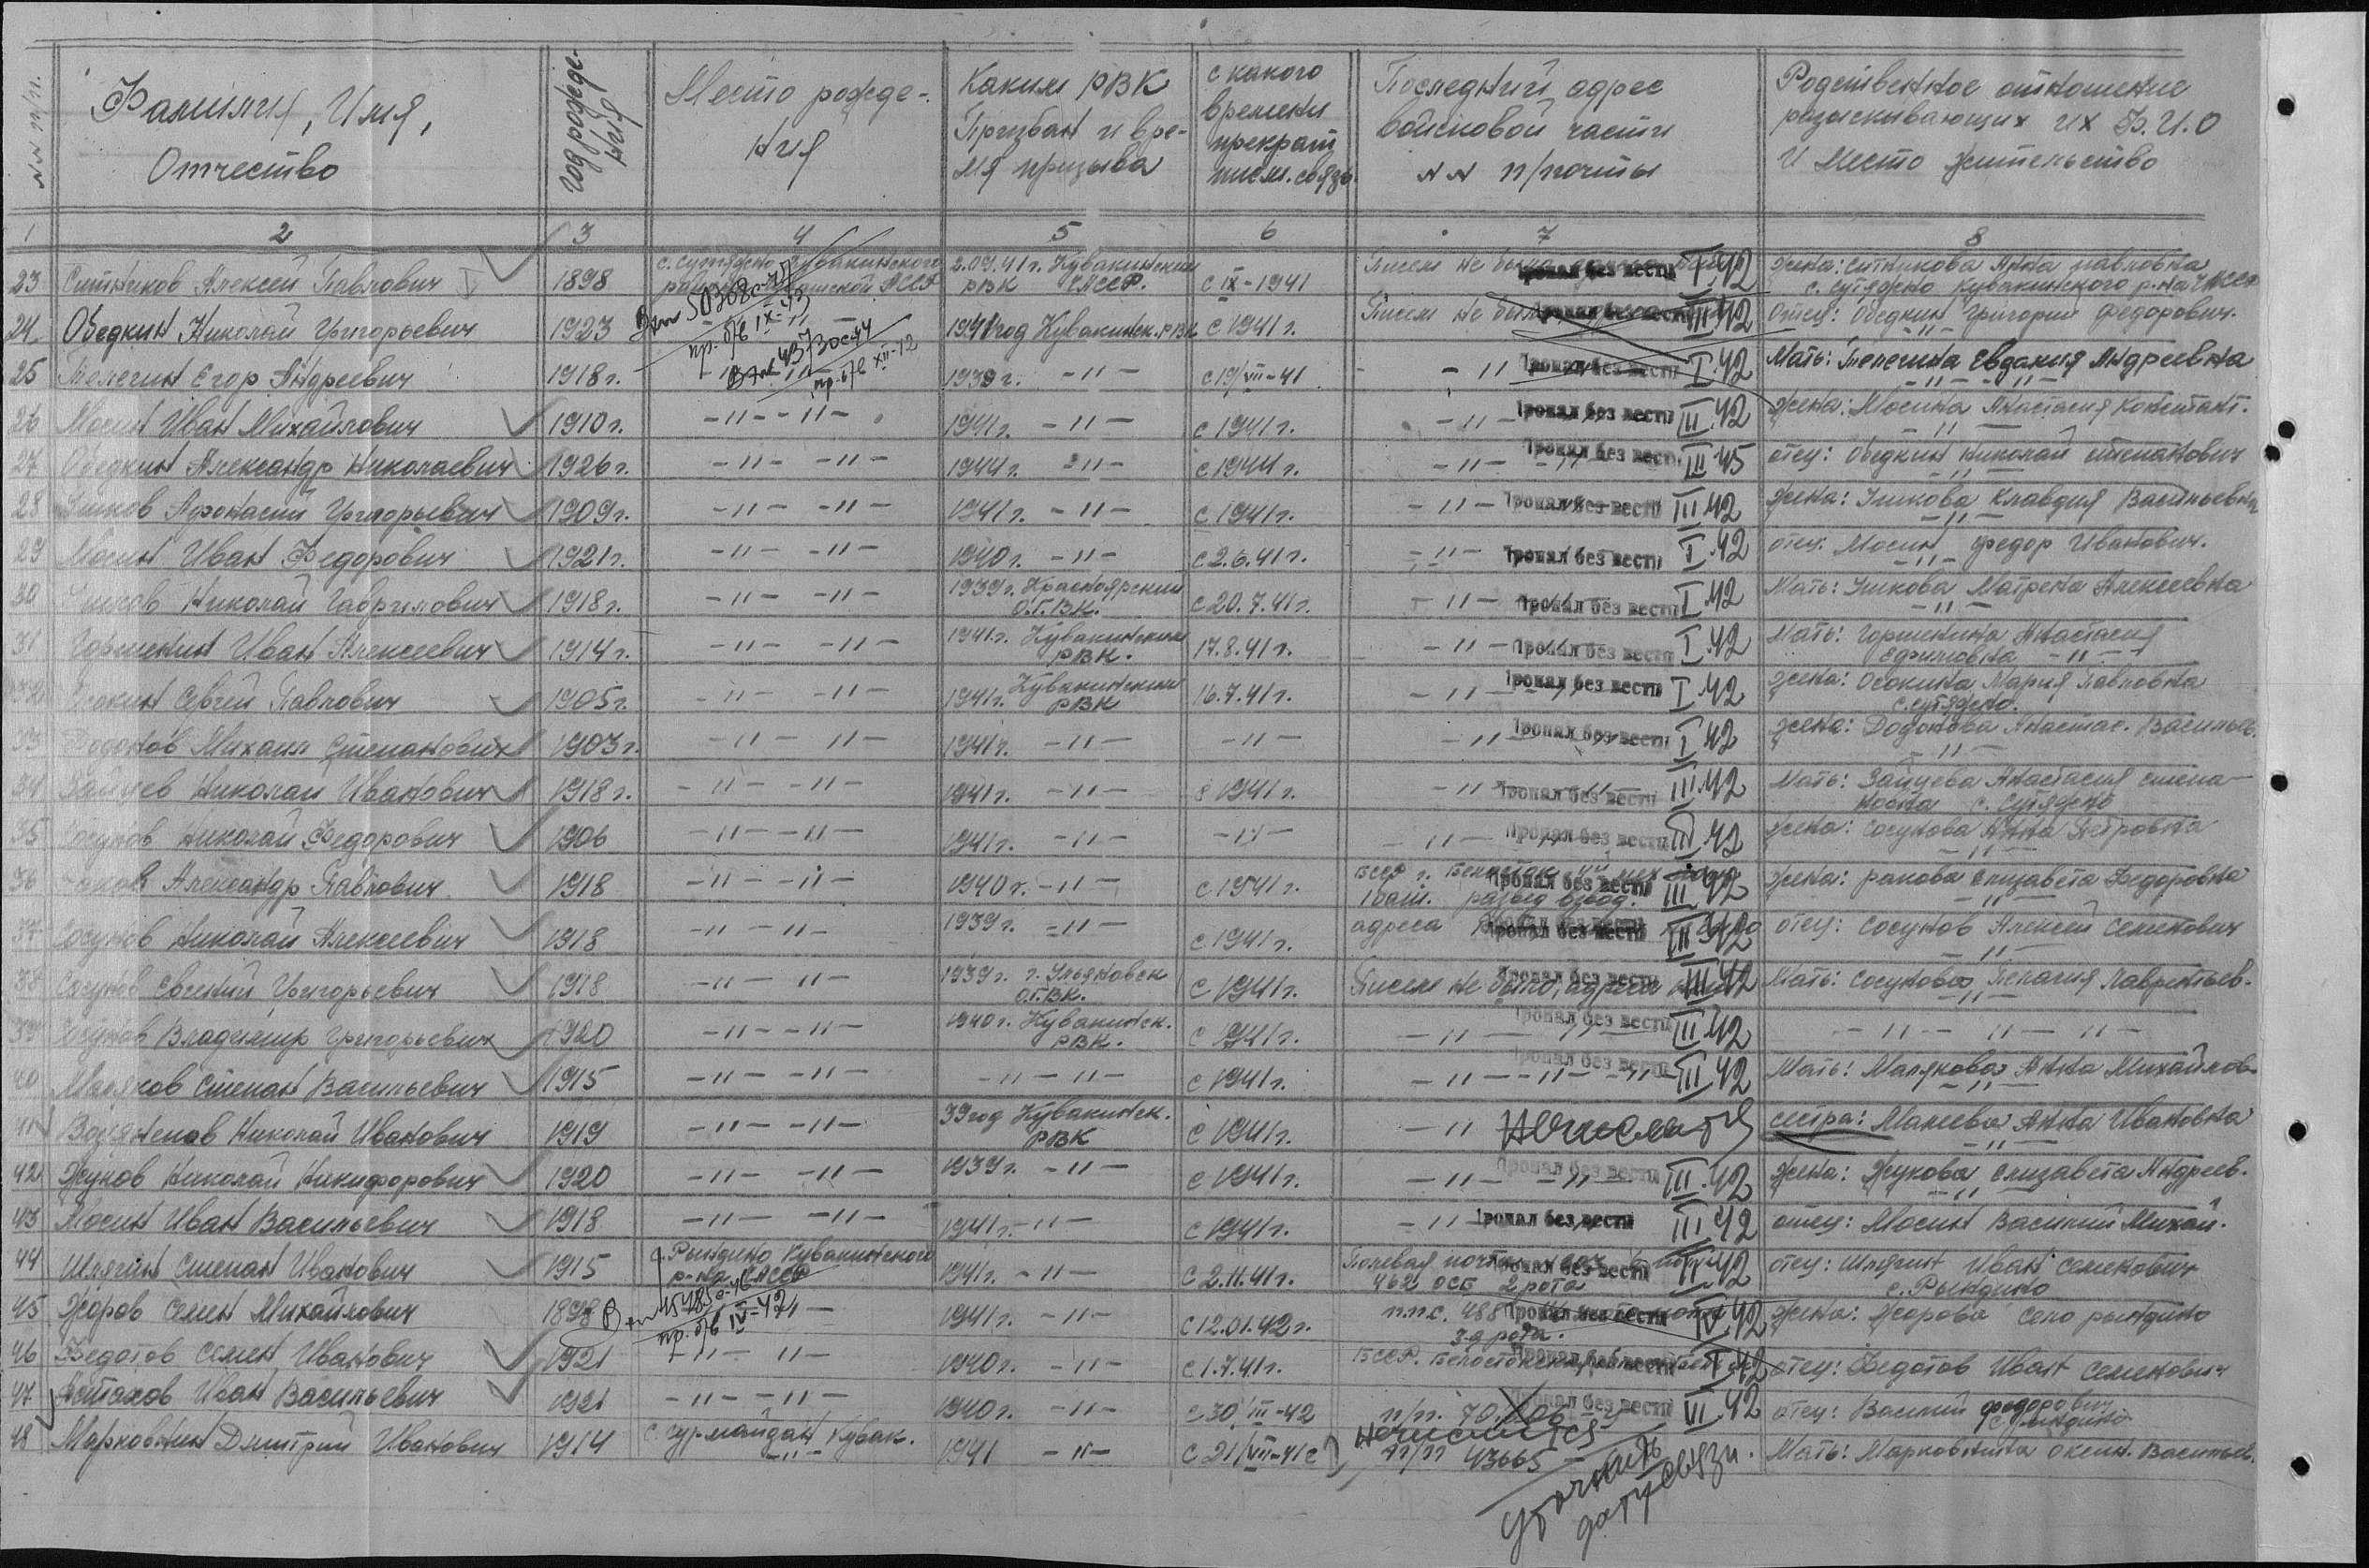 NN п/п.
Фамилия, Имя,
Отчество
год рожде-
ния
Место рожде-
ния
Каким РВК
Призван и вре-
мя призыва
с какого
времени
прекрат
писм. связь
Последний адрес
войсковой части
NN п/почты
Родственное отношение
разыскивающих их Ф.И.О
и место жительство
1 2 3 4 5 6 7 8
23 Ситников Алексей Павлович 1898 с. Сутяжно Кувакинского 2.09.41г. Кувакинский РВК ЧАССР. с IX-1941 Писем не было Пропал без вести I.42 жена: Ситникова Анна Павловна
с. Сутяжно Кувакинского р-на ЧАССР
24 Ободкин Николай Григорьевич 1923 - 11 - 1941 год Кувакинск. РВК с 1941г. Писем не было Пропал без вести III 42 Отец: Ободкин Григорий Федорович.
пр. б/в IX-43
25 Пелегин Егор Андреевич 1918г. 1939г. - 11 - с 19/VII-41 - 11 Пропал без вести I.42 Мать: Пелегина Евдакия Андреевна
- 11 - - 11 -
пр. б/в XII-42
26 Мосин Иван Михайлович 1910г. - 11 - - 11 - 1941г. - 11 - с 1941г. - 11 - Пропал без вести III 42 жена: Мосина Анастасия Констант.
- 11 -
27 Ободкин Александр Николаевич 1926г. - 11 - - 11 - 1944г. - 11 - с 1944г. - 11 - Пропал без вести III 45 отец: Ободкин Николай Степанович
- 11 -
28 Учиков Афонасий Григорьевич 1909г. - 11 - - 11 - 1941г. - 11 - с 1941г. - 11 - Пропал без вести III 42 жена: Учикова Клавдия Васильевна
- 11 -
29 Мосин Иван Федорович 1921г. - 11 - - 11 - 1940г. - 11 - с 2.6.41г. - 11 - Пропал без вести I.42 отец: Мосин Федор Иванович.
- 11 -
30 Николай Гаврилович 1918г. - 11 - - 11 - 1939г. Красноярский О.Г.ВК. с 20.7.41г. - 11 - Пропал без вести I 42 Мать: Учикова Матрена Алексеевна
- 11 -
31 Горшенин Иван Алексеевич 1914г. - 11 - - 11 - 1941г. Кувакинский РВК. 17.8.41г. - 11 - Пропал без вести I 42 Мать: Горшенина Анастасия
Ефимовна - 11 -
32 Осокин Сергей Павлович 1905г. - 11 - - 11 - 1941г. Кувакинский РВК 16.7.41г. - 11 - Пропал без вести I 42 жена: Осокина Мария Павловна
с. Сутяжно.
33 Додонов Михаил Степанович 1903г. - 11 - 11 - 1941г. - 11 - - 11 - - 11 - Пропал без вести I 42 жена: Додонова Анастас. Васильев.
- 11 -
34 Зайцев Николай Иванович 1918г. - 11 - - 11 - 1941г. - 11 - 1941г. - 11 - Пропал без вести III 42 Мать: Зайцева Анастасия Степа-
новна с. Сутяжно
35 Сосунов Николай Федорович 1906 - 11 - - 11 - 1941г. - 11 - - 11 - - 11 - Пропал без вести 42 жена: Сосунова Анна Петровна
- 11 -
36 Александр Павлович 1918 - 11 - - 11 - 1940г. - 11 - с 1941г. БССР г. Пропал без вести III 42
1 бат. развед взвод. жена: Ракова Елизавета Федоровна
- 11 -
37 Сосунов Николай Алексеевич 1918 - 11 - 11 - 1939г. - 11 - с 1941г. адреса Пропал без вести III 42 отец: Сосунов Алексей Семенович
- 11 -
38 Сосунов Евгений Григорьевич 1918 - 11 - 11 - 1939г. г. Ульяновск О.Г.ВК. с 1941г. Писем не было, адреса Пропал без вести III 42 Мать: Сосунова Пелагия Лаврентьев.
- 11 -
39 Сосунов Владимир Григорьевич 1920 - 11 - - 11 - 1940г. Кувакинск. РВК. с 1941г. - 11 - Пропал без вести III 42 - 11 - 11 - 11 -
40 Маляков Степан Васильевич 1915 - 11 - - 11 - - 11 - 11 - с 1941г. - 11 - - 11 - - 11 - Пропал без вести III 42 Мать: Малякова Анна Михайлов.
- 11 -
41 Николай Иванович 1919 - 11 - - 11 - 39 год Кувакинск. РВК с 1941г. - 11 не числится сестра: Макеева Анна Ивановна
- 11 -
42 Жуков Николай Никифорович 1920 - 11 - - 11 - 1939г. - 11 - с 1941г. - 11 - Пропал без вести III.42 Жена: Жукова Елизавета Андреев.
- 11 -
43 Мосин Иван Васильевич 1918 - 11 - - 11 - 1941г. - 11 - с 1941г. - 11 Пропал без вести III 42 отец: Мосин Василий Михай.
44 Шлягин Степан Иванович 1915 с. Рындино Кувакинского р-на ЧАССР 1941г. - 11 - с 2.11.41г. Полевая почта Пропал без вести 42
462 ОСБ 2 рота отец: Шлягин Иван Семенович
с. Рындино
45 Жоров Семен Михайлович 1898 1941г. - 11 - с 12.01.42г. п.п.с. 488 Пропал без вести IV.42
3я рота. жена: Жорова село Рындино
пр. б/в IV-42
46 Федотов Семен Иванович 1921 - 11 - 11 - 1940г. - 11 - с 1.7.41г. БССР. Белостокская Пропал без вести I 42 отец: Федотов Иван Семенович
47 Астахов Иван Васильевич 1921 - 11 - - 11 - 1940г. - 11 - с 30 VII-42 п/п. Пропал без вести VI 42 отец: Василий Федорович
с. Рындино
48 Марковнин Дмитрий Иванович 1914 с. Чурмайдан Кувак. - 11 - 1941 - 11 - с 21/VII-41 не числится
п/п 43665 Мать: Марковнина Оксин. Васильев.
Уточнить
дату связи.